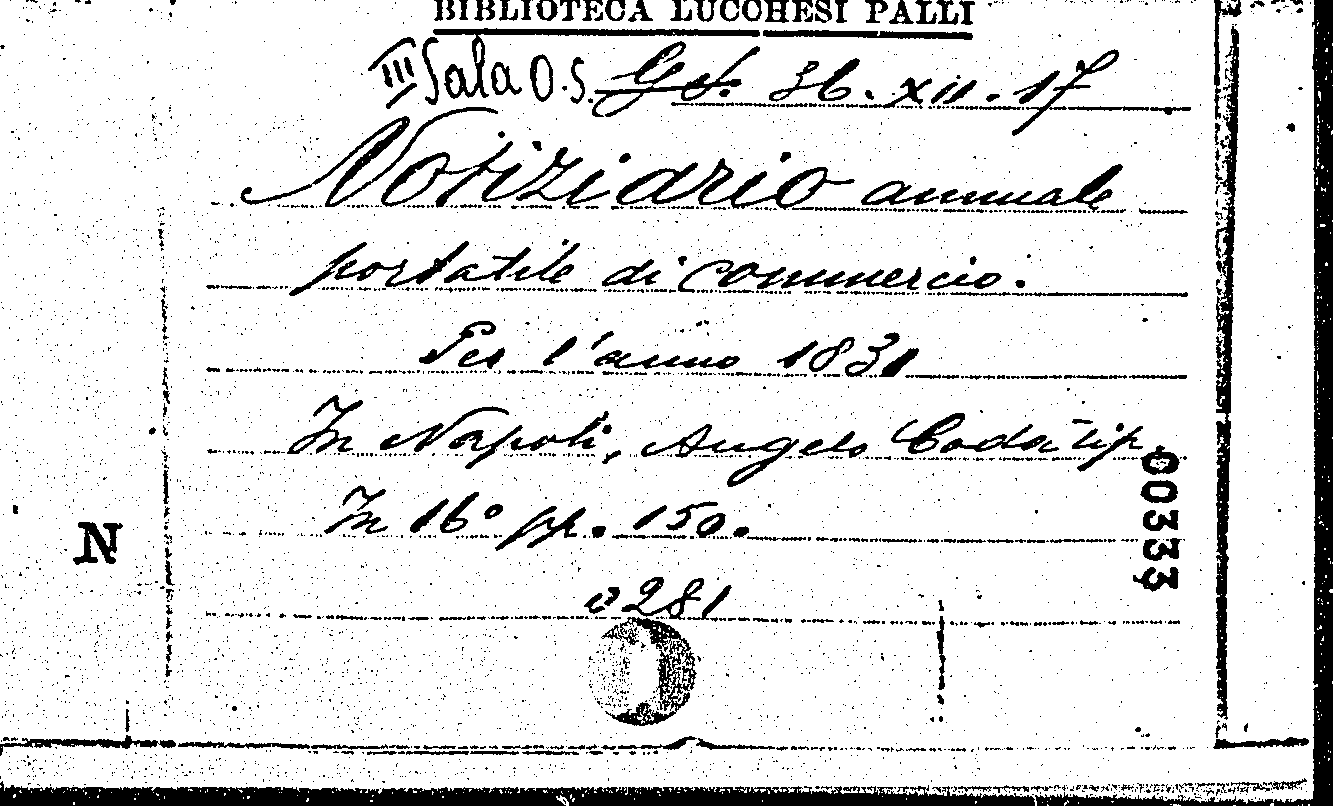 BIBLIOTECA LUCCHESI PALLI
III Sala O.S. 36. XII. 17
Notiziario annuale
portatile di commercio.
Per l'anno 1831
In Napoli, Angelo Coda tip.
In 16° pp. 150.
N
281
00333